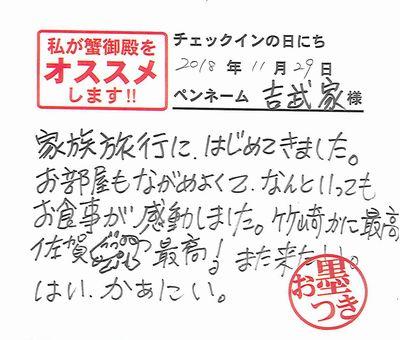 私が蟹御殿を
オススメ
します!!
チェックインの日にち
2018 年 11 月 29 日
ペンネーム 吉武家 様
家族旅行に、はじめてきました。
お部屋もながめよくて、なんといっても
お食事が感動しました。竹崎かに最高
佐賀 最高! また来たい。
はい、かぁにぃ。
お墨つき